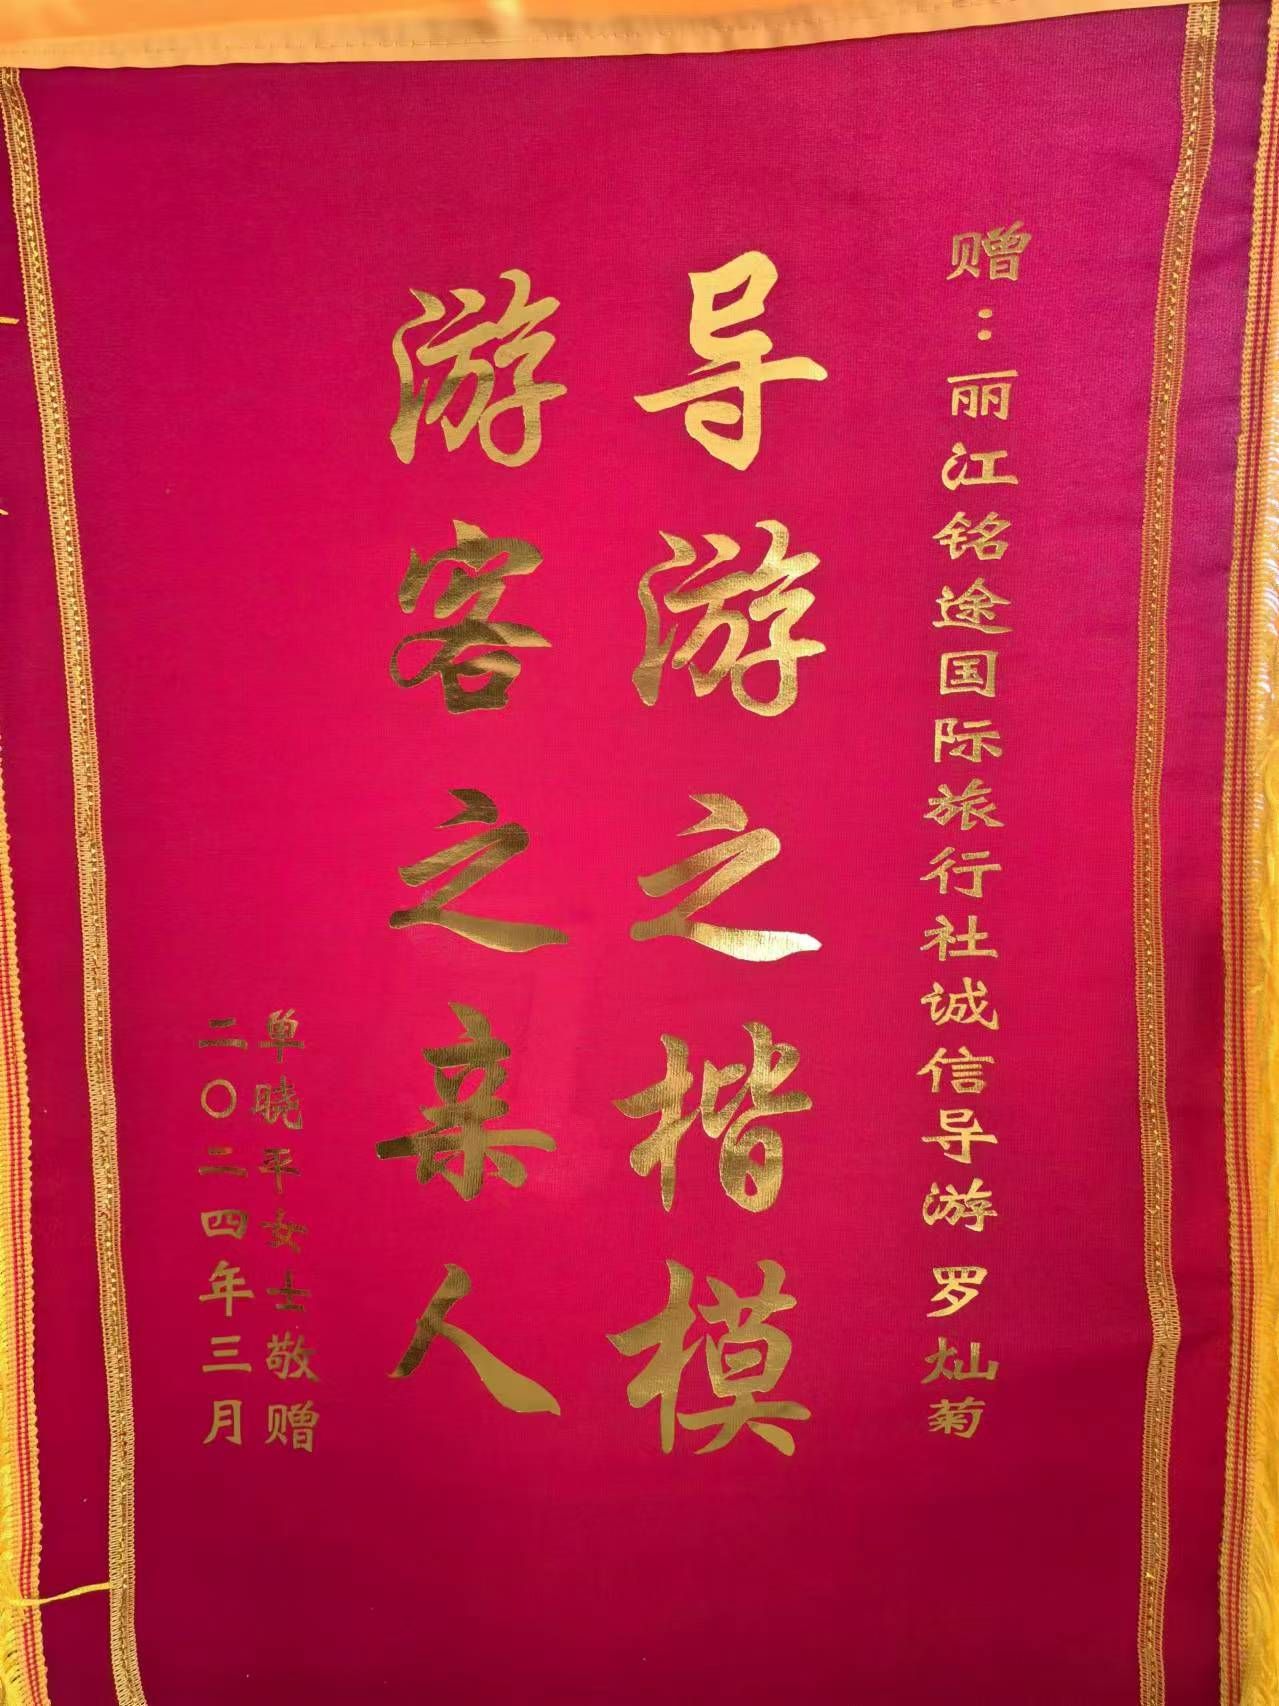 赠：丽江铭途国际旅行社诚信导游 罗灿菊
导游之楷模
游客之亲人
单晓平女士敬赠
二〇二四年三月